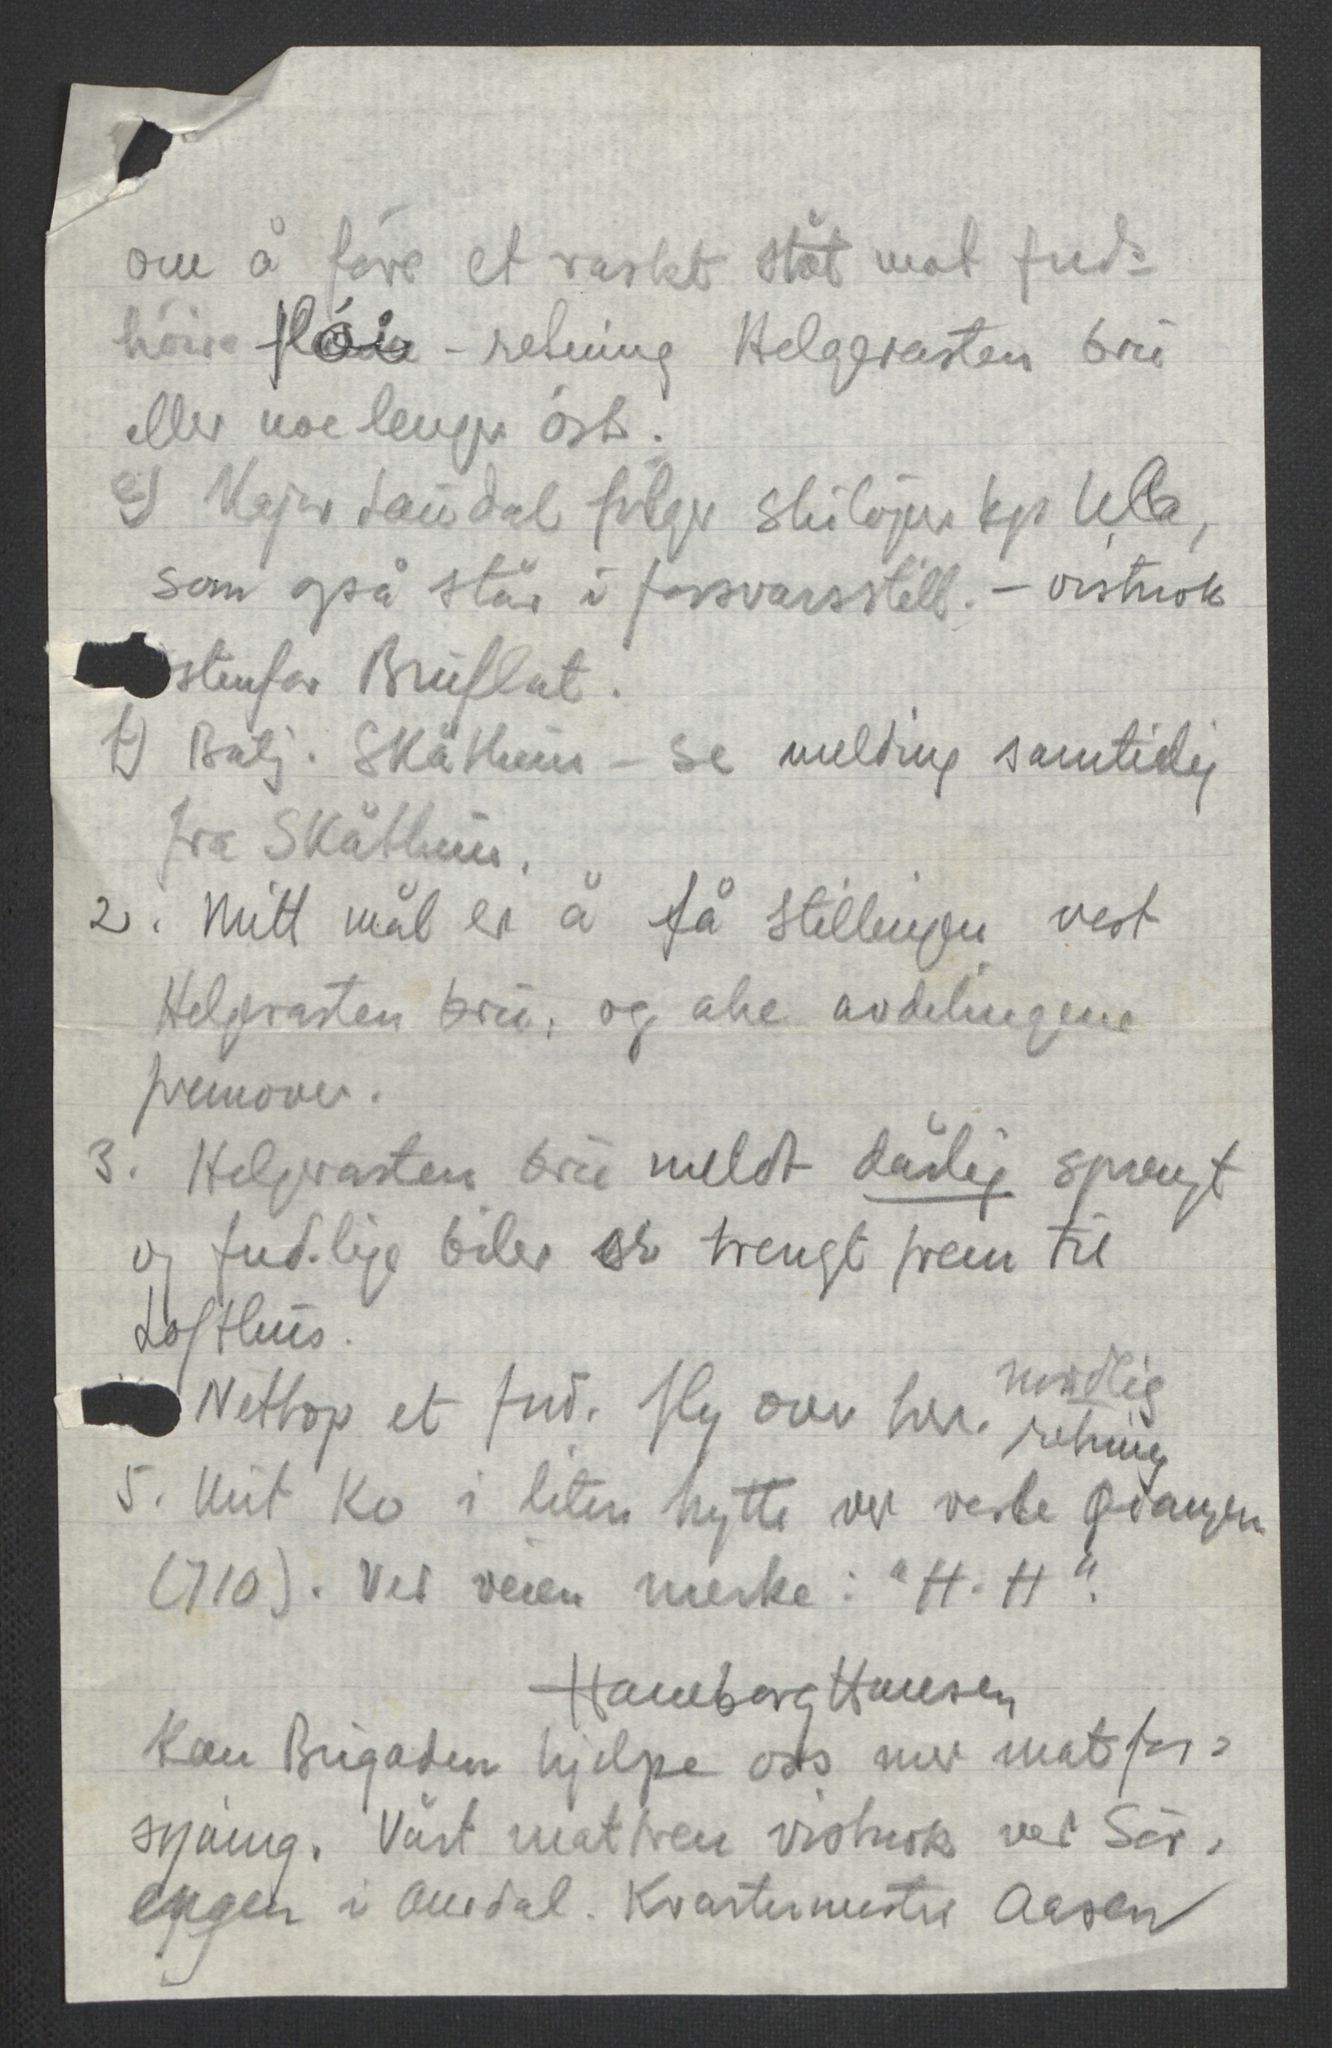 om å føre et raskt støt mot fiend-
høire fløi - retning Helgerasten bru
eller noe lenger öst.
e) Major Lauudal følger skiløper kp Ula,
som også står i forsvarsstill. - vistnok
stenfor Bruflat.
f) Batj. Skåthun - se melding samtidig
fra Skåthun.
2. Mitt mål er å få stillingen vest
Helgerasten bru, og ake avdelingene
fremover.
3. Helgerasten bru meldt dårlig sprengt
og fiendlige biler er trengt frem til
Lofthus.
Nettop et fiend. fly over her. nordlig
retning
5. Mit Ko i liten hytte ved vestre
(710). Ved veien merke: "H.H".
Hamborg Hansen
Kan Brigaden hjelpe oss med matfor-
syning. Vårt mattren vistnok ved Sör-
engen i Aurdal. Kvartermester Aasen